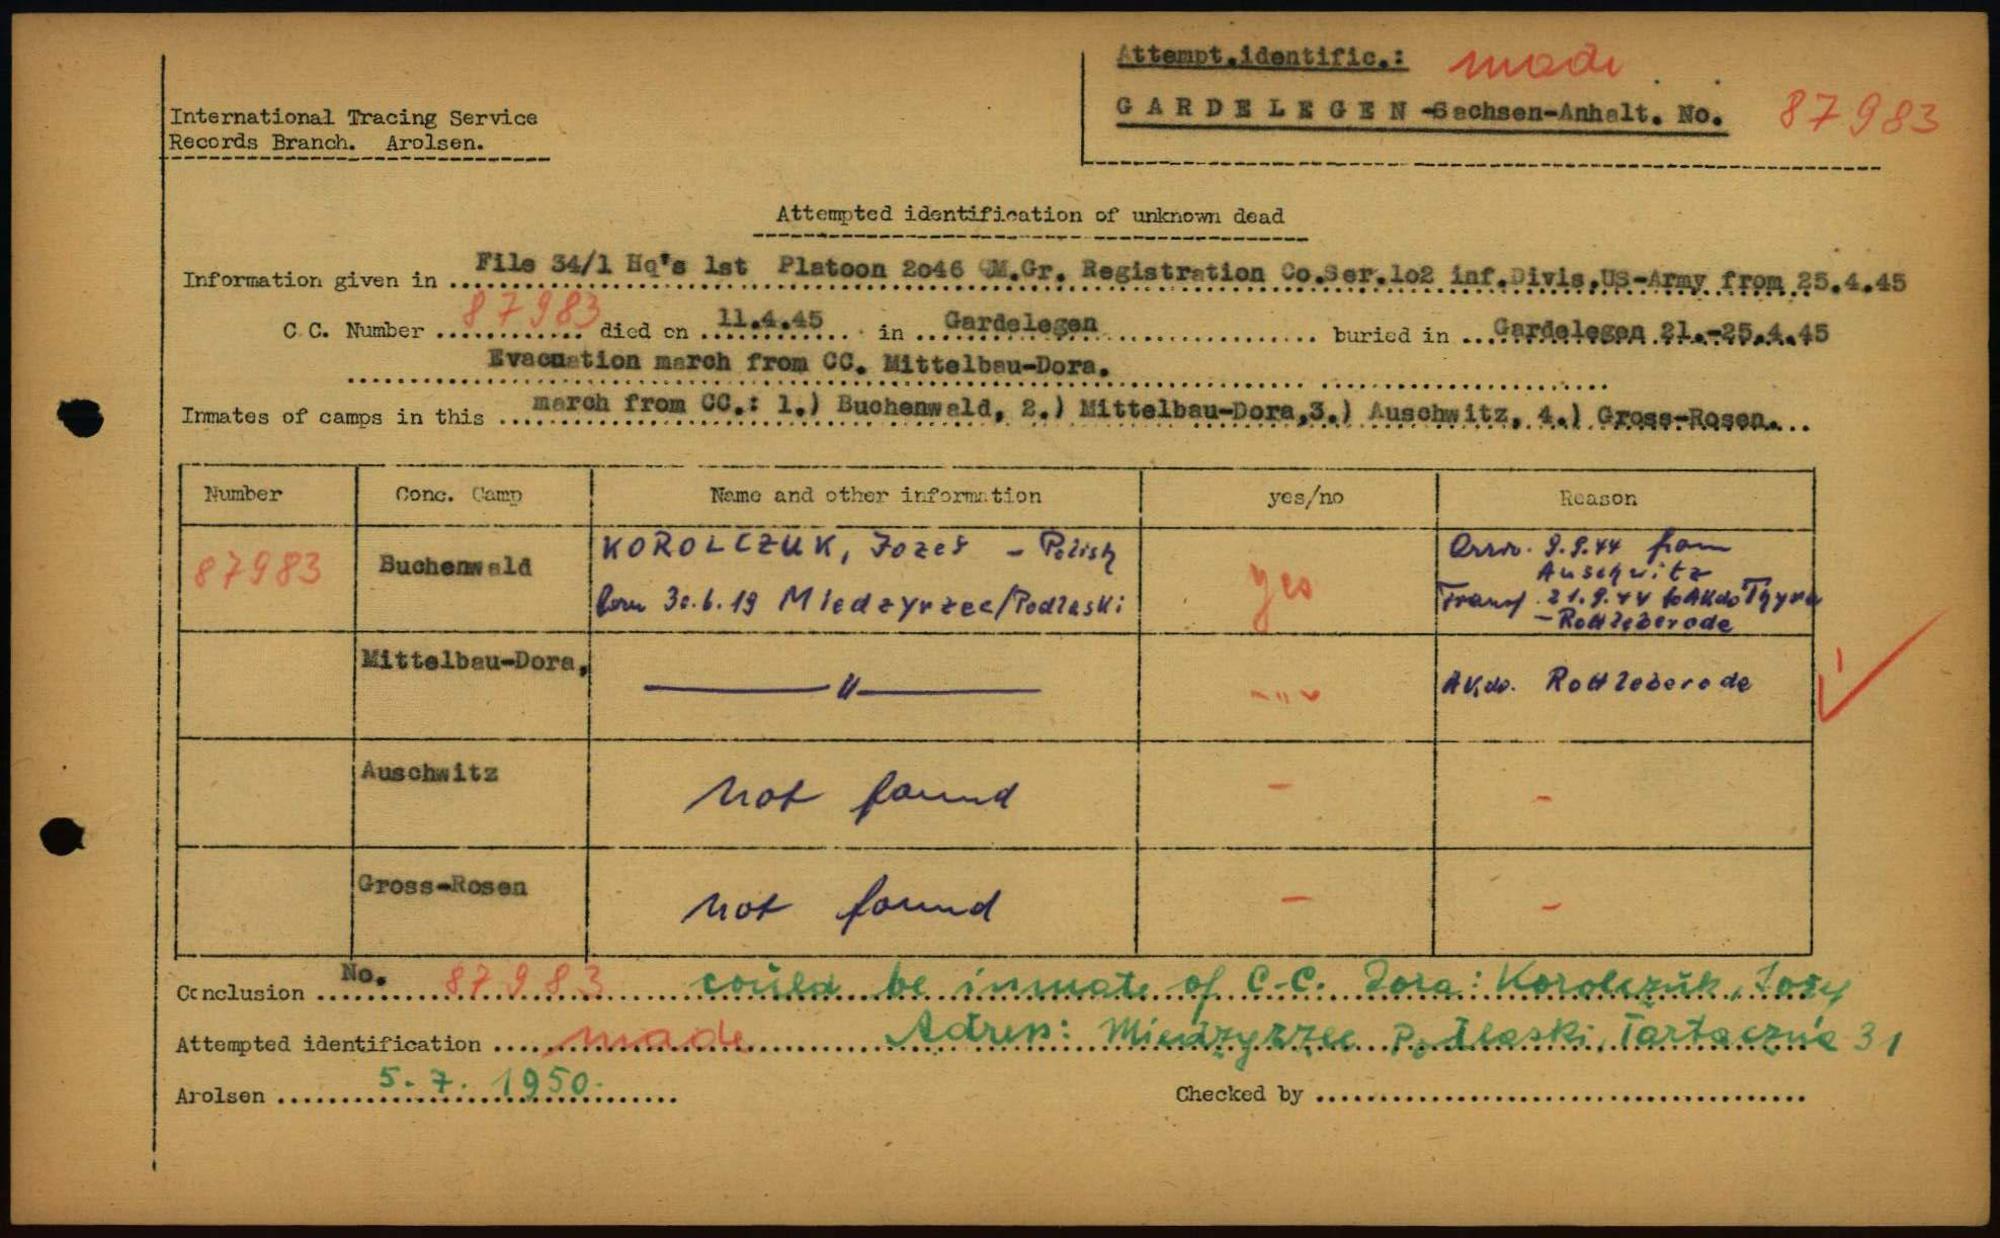 Attempt.identific.: made
GARDELEGEN-Sachsen-Anhalt. No. 87983
International Tracing Service
Records Branch. Arolsen.
Attempted identification of unknown dead
Information given in File 34/1 Hq's 1st Platoon 2o46 QM.Gr. Registration Co.Ser.1o2 inf.Divis.US-Army from 25.4.45
C.C. Number 87983 died on 11.4.45 in Gardelegen buried in Gardelegen 21.-25.4.45
Evacuation march from CC. Mittelbau-Dora.
Inmates of camps in this march from CC.: 1.) Buchenwald, 2.) Mittelbau-Dora,3.) Auschwitz, 4.) Gross-Rosen.
Number Conc. Camp Name and other information yes/no Reason
87983 Buchenwald KOROLCZUK, Jozef - Polish yes Arriv. 9.9.44 from
Auschwitz
born 30.6.19 Miedzyrzec/Podlaski Transf. 21.9.44 to AKdo
-Rottleberode
Mittelbau-Dora, —— " —— - " - AKdo. Rottleberode
Auschwitz not found - -
Gross-Rosen not found - -
Conclusion No. 87983 could be inmate of C.C. Dora: Korolczuk, Jozef
Attempted identification made Adress: Miedzyrzec Podlaski, Tartaczna 31
Arolsen 5.7.1950. Checked by